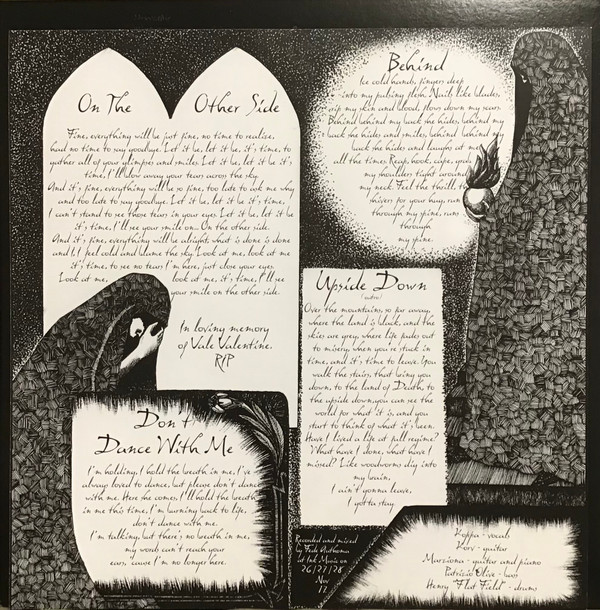 On The Other Side
Fine, everything will be just fine, no time to realise,
had no time to say goodbye. Let it be, let it be, it's time, to
gather all of your glimpses and smiles. Let it be, let it be it's
time, I'll blow away your tears across the sky.
And it's fine, everything will be so fine, too late to ask me why
and too late to say goodbye. Let it be, let it be it's time,
I can't stand to see those tears in your eyes. Let it be, let it be
it's time, I'll see your smile on. On the other side.
And it's fine, everything will be alright, what is done is done
and I, I feel cold and blame the sky. Look at me, look at me
it's time, to see no tears I'm here, just close your eyes.
Look at me, look at me, it's time, I'll see
your smile on the other side.
In loving memory
of Vale Valentine.
RIP
Behind
Ice cold hands, fingers deep
into my pulsing flesh. Nails like blades,
rip my skin and blood, flows down my scars.
Behind behind my back she hides, behind my
back she hides and smiles, behind behind my
back she hides and laughs at me
all the times. Reap, hook, cape, grab
my shoulders tight around
my neck. Feel the thrill, the
shivers for your hug, run
through my spine, runs
through
my spine.
Upside Down
(outro)
Over the mountains, so far away,
where the land is black, and the
skies are grey, where life fades out
to misery, when you're stuck in
time, and it's time to leave. You
walk the stairs, that bring you
down, to the land of Death, to
the upside down, you can see the
world for what it is, and you
start to think of what it's been.
Have I lived a life at full regime?
What have I done, what have I
missed? Like woodworms dig into
my brain,
I ain't gonna leave,
I gotta stay.
Don't
Dance With Me
I'm holding, I hold the breath in me, I've
always loved to dance, but please don't dance
with me. Here she comes, I'll hold the breath
in me this time, I'm burning back to life,
don't dance with me.
I'm talking, but there's no breath in me,
my words can't reach your
ears, cause I'm no longer here.
Recorded and mixed
by Fede
at Ink Music on
26/27/28
Nov
17
Koppa - vocals
Kors - guitar
Marsiona - guitar and piano
Patrizio Olive - bass
Henry "Flat Field" - drums